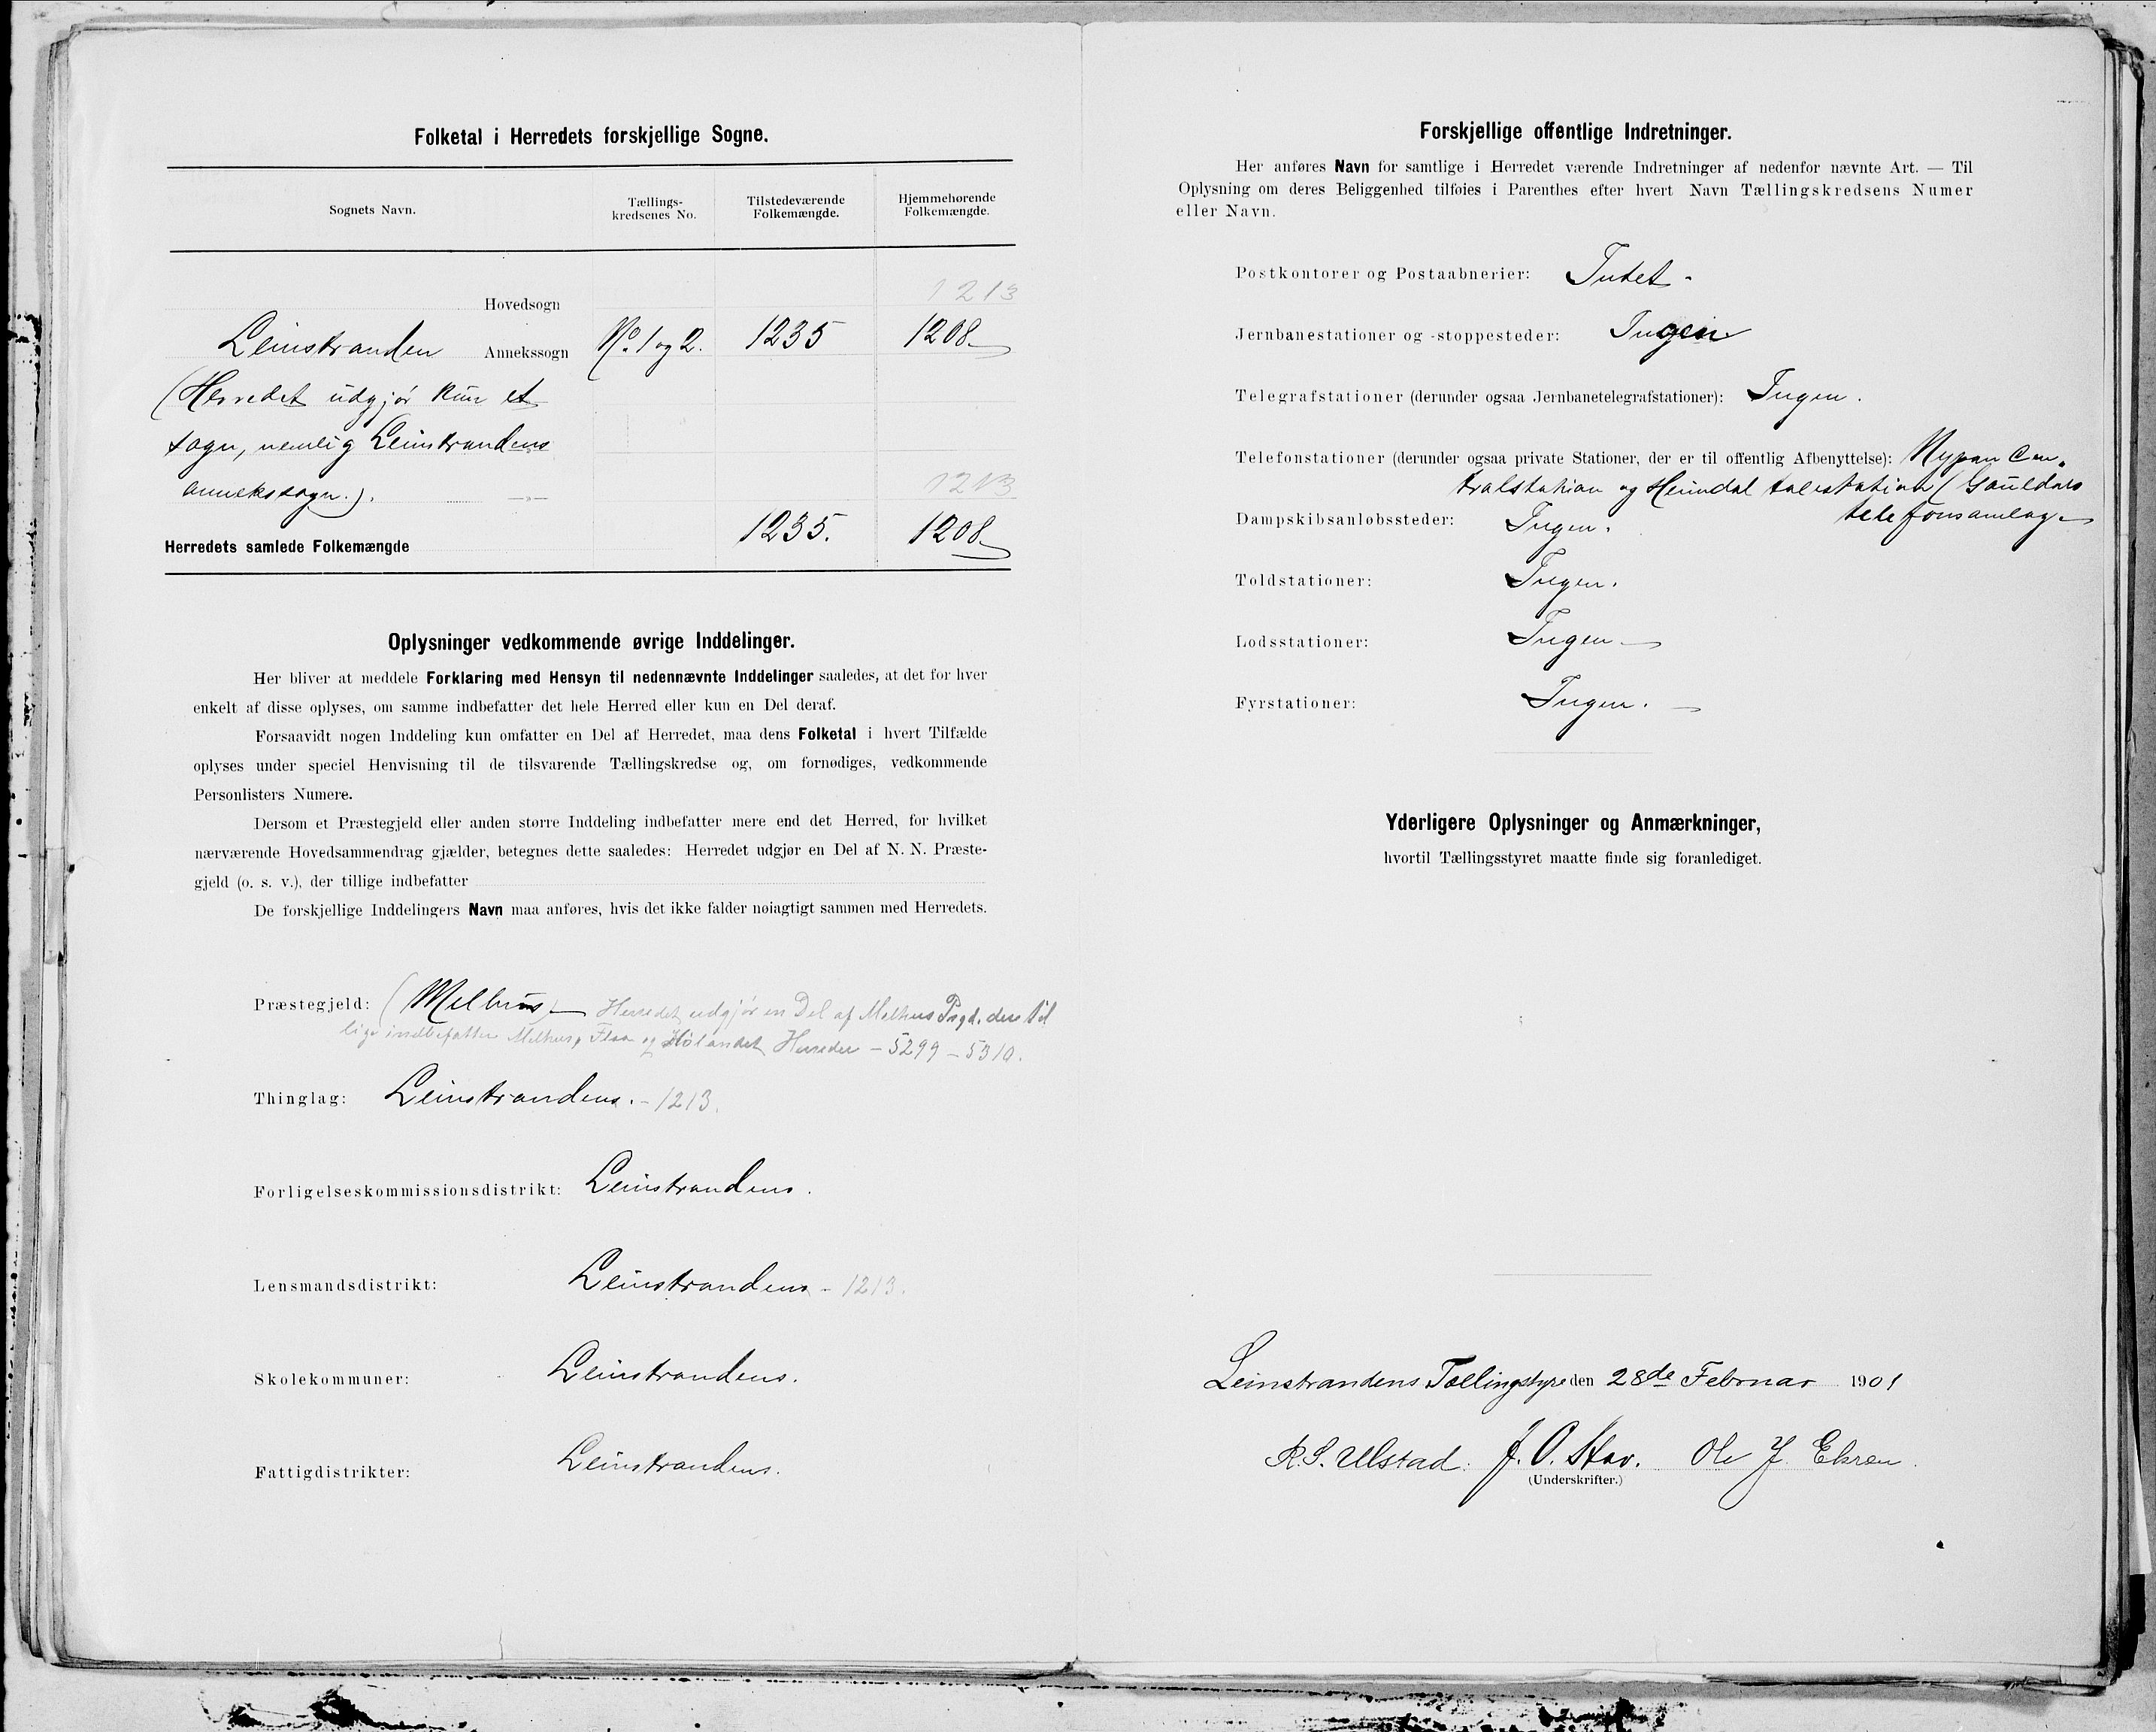 Folketal i Herredets forskjellige Sogne.
Sognets Navn.
Tællings-
kredsenes No.
Tilstedeværende
Folkemængde.
Hjemmehørende
Folkemængde.
1213
Hovedsogn
Leinstranden Annekssogn No. 1 og 2. 1235 1208
(Herredet udgjør kun et
sogn, nemlig Leinstrandens
annekssogn.). —»—
1213
Herredets samlede Folkemængde 1235. 1208
Oplysninger vedkommende øvrige Inddelinger.
Her bliver at meddele Forklaring med Hensyn til nedennævnte Inddelinger saaledes, at det for hver
enkelt af disse oplyses, om samme indbefatter det hele Herred eller kun en Del deraf.
Forsaavidt nogen Inddeling kun omfatter en Del af Herredet, maa dens Folketal i hvert Tilfælde
oplyses under speciel Henvisning til de tilsvarende Tællingskredse og, om fornødiges, vedkommende
Personlisters Numere.
Dersom et Præstegjeld eller anden større Inddeling indbefatter mere end det Herred, for hvilket
nærværende Hovedsammendrag gjælder, betegnes dette saaledes: Herredet udgjør en Del af N. N. Præste-
gjeld (o. s. v.), der tillige indbefatter
De forskjellige Inddelingers Navn maa anføres, hvis det ikke falder nøiagtigt sammen med Herredets.
Præstegjeld: (Melhus) — Herredet udgjør en Del af Melhus Prgd. der til
lige indbefatter Melhus, Flaa og Hølandet Herreder – 5299 – 5310.
Thinglag: Leinstrandens. – 1213.
Forligelseskommissionsdistrikt: Leinstrandens.
Lensmandsdistrikt: Leinstrandens – 1213.
Skolekommuner: Leinstrandens.
Fattigdistrikter: Leinstrandens.
Forskjellige offentlige Indretninger.
Her anføres Navn for samtlige i Herredet værende Indretninger af nedenfor nævnte Art. — Til
Oplysning om deres Beliggenhed tilføies i Parenthes efter hvert Navn Tællingskredsens Numer
eller Navn.
Postkontorer og Postaabnerier: Intet -
Jernbanestationer og -stoppesteder: Ingen
Telegrafstationer (derunder ogsaa Jernbanetelegrafstationer): Ingen.
Telefonstationer (derunder ogsaa private Stationer, der er til offentlig Afbenyttelse): Nypan Cen-
tralstation og Heimdal talestation (Gauldals
telefonsamlag
Dampskibsanløbssteder: Ingen.
Toldstationer: Ingen.
Lodsstationer: Ingen —
Fyrstationer: Ingen. —
Yderligere Oplysninger og Anmærkninger,
hvortil Tællingsstyret maatte finde sig foranlediget.
Leinstrandens Tællingstyre den 28de Februar 1901
R. S. Ulstad. J. O. Stav. Ole J. Ekren.
(Underskrifter.)